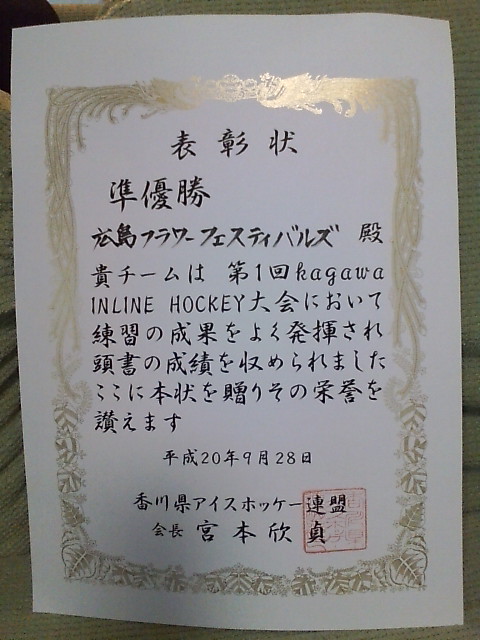 表彰状
準優勝
広島フラワーフェスティバルズ 殿
貴チームは 第1回kagawa
INLINE HOCKEY大会において
練習の成果をよく発揮され
頭書の成績を収められました
ここに本状を贈りその栄誉を
讃えます
平成20年9月28日
香川県アイスホッケー連盟
会長 宮本欣貞